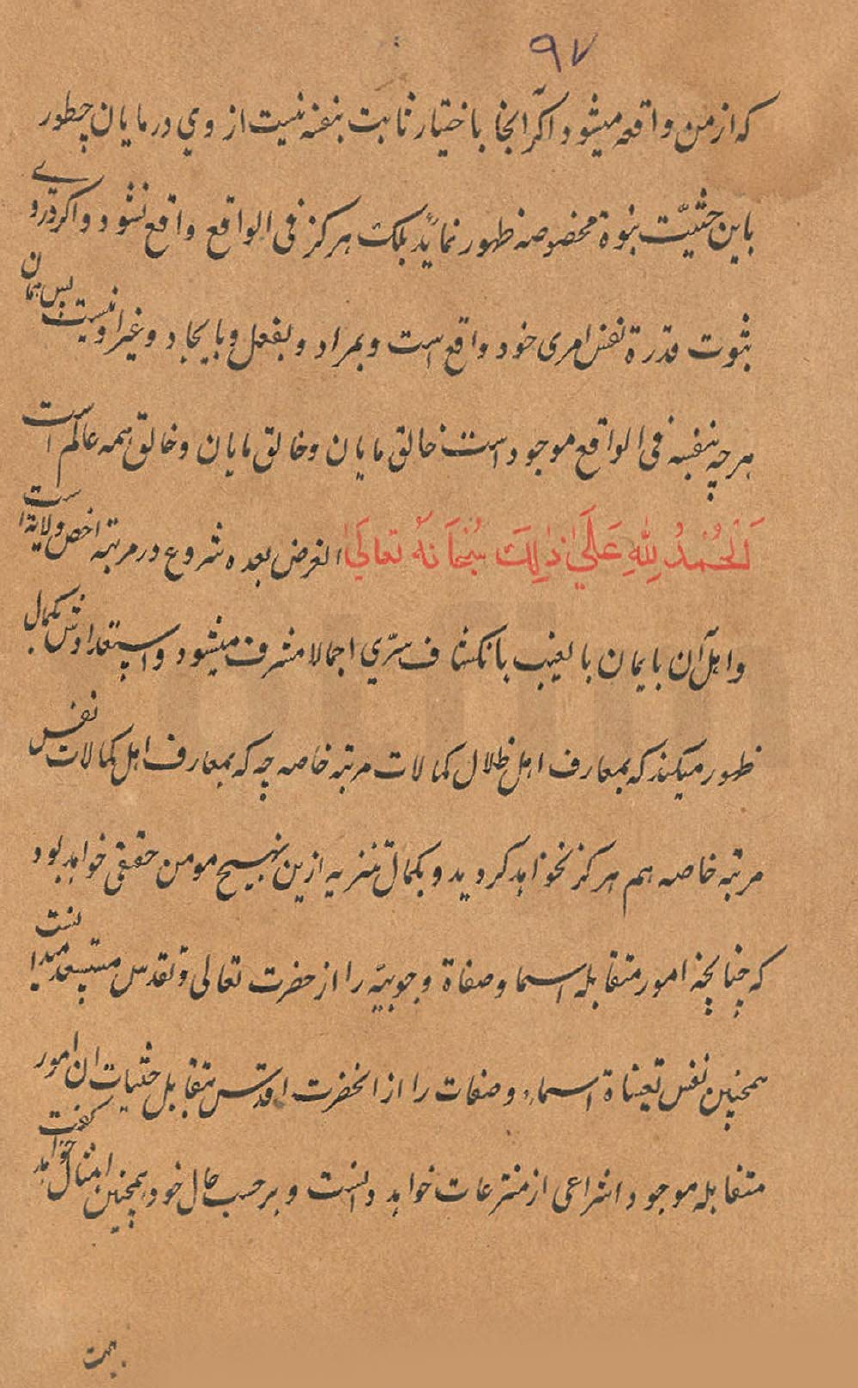 ۹۷
که از من واقعه میشود اگر آنجا باختیار ثابت بنفسه نیست از وی در مایان چطور
باین حثیّت بنوة مخصوصه ظهور نماید بلکه هرکز فی الواقع واقع نشود و اکر در وے
ثبوت قدرة نفس امری خود واقع است و بمراد و بفعل و بایجاد و غیر او نیست پس همان
هرچه بنفسه فی الواقع موجود است خالق مایان و خالق مایان و خالق همه عالم است
اَلْحَمْدُ لِلّٰهِ عَلَیٰ ذٰلِكَ سُبْحَانَهٗ تَعَالَیٰ الغرض بعده شروع در مرتبه اخص ولایة است
و اهل آن بایمان بالغیب بانکشاف سرّی اجمالا مشرف میشود و استعدادش بکمال
ظهور میکند که بمعارف اهل ظلال کمالات مرتبه خاصه چه که بمعارف اهل کمالات نفس
مرتبه خاصه هم هرکز نخواهد کردید و بکمال تنزیه ازین بهیچ مومن حقیقی خواهد بود
که چنانچه امور متقابله اسما و صفاة وجوبیّه را از حضرت تعالی و تقدس مستبعد میدانست
همچنین نفس تعیناة اسماء و صفات را از انحضرت اقدس متقابل حثیات ان امور
متقابله موجود انتزاعی از منتزعات خواهد دانست و بر حسب حال خود همچنین امثال خواهد کفت